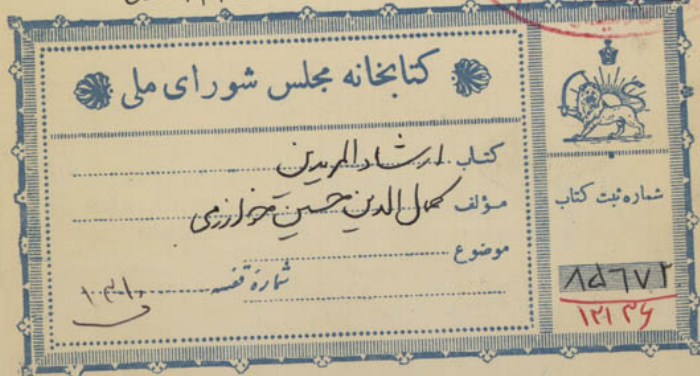 کتابخانه مجلس شورای ملی
کتاب ارشاد المریدین
مؤلف کمال الدین حسین خوارزمی
موضوع
شمارۀ قفسه ۱۰۳۱۰
شماره ثبت کتاب
۸۵۶۷۲
۱۲۱۳۶